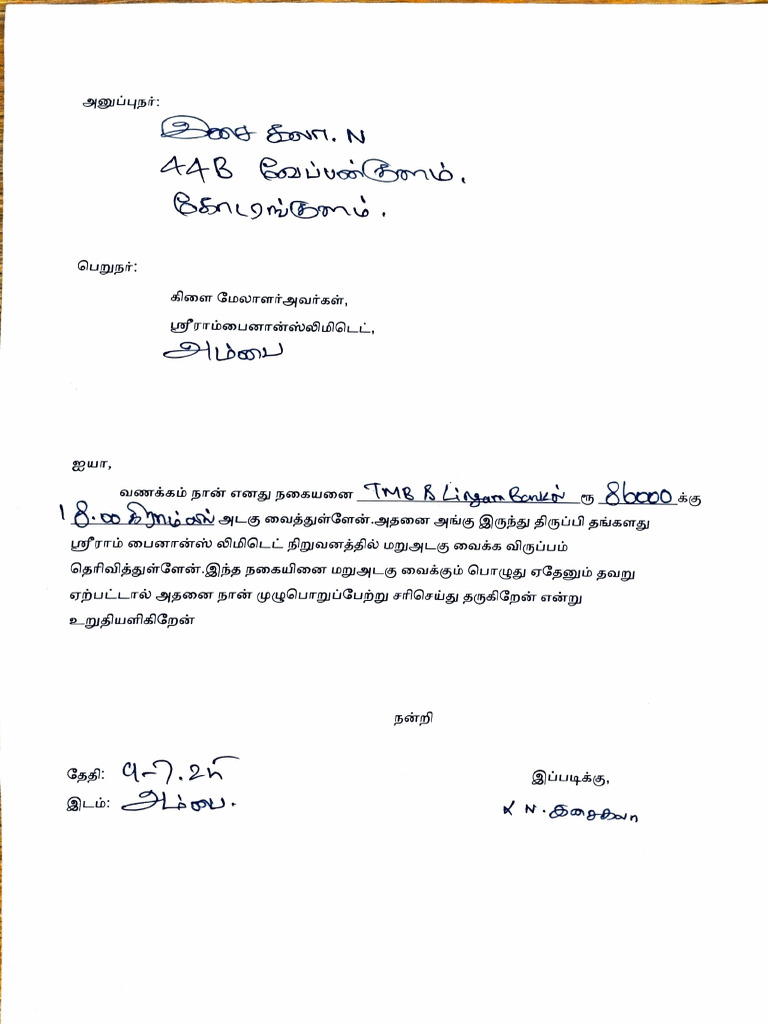 அனுப்புநர்:
இசை கலா. N
44B வேப்பன்குளம்.
கோடரங்குளம்.
பெறுநர்:
கிளை மேலாளர்அவர்கள்,
ஸ்ரீராம்பைனான்ஸ்லிமிடெட்,
அம்பை
ஐயா,
வணக்கம் நான் எனது நகையனை TMB B Lingam Bankல் ரூ 86000 க்கு
18.00 கிராம் அடகு வைத்துள்ளேன்.அதனை அங்கு இருந்து திருப்பி தங்களது
ஸ்ரீராம் பைனான்ஸ் லிமிடெட் நிறுவனத்தில் மறுஅடகு வைக்க விருப்பம்
தெரிவித்துள்ளேன்.இந்த நகையினை மறுஅடகு வைக்கும் பொழுது ஏதேனும் தவறு
ஏற்பட்டால் அதனை நான் முழுபொறுப்பேற்று சரிசெய்து தருகிறேன் என்று
உறுதியளிகிறேன்
நன்றி
தேதி: 9-7.25
இப்படிக்கு,
இடம்: அம்பை.
N. இசைகலா